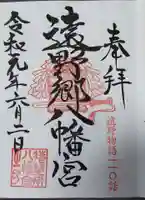 奉拝
遠野物語一一〇話
遠野郷八幡宮
令和元年六月二日